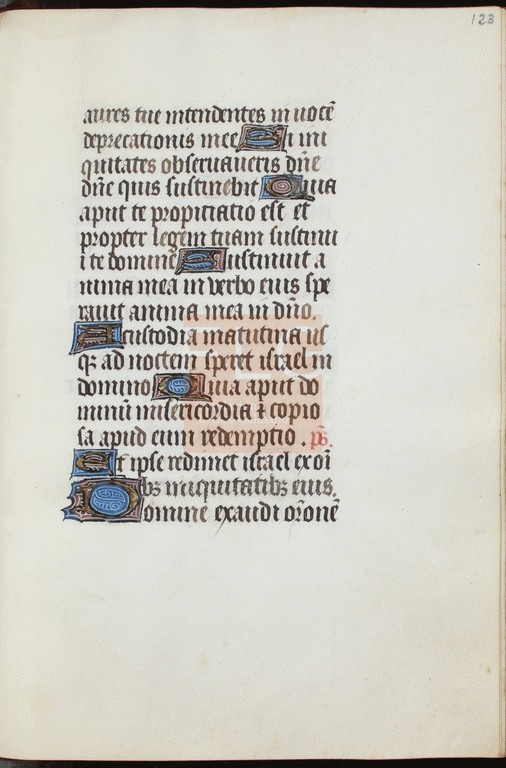 123
aures tue intendentes in uocē
deprecationis mee Si ini
quitates obseruaueris dñe
dñe quis sustinebit Quia
aput te propiciatio est et
propter legem tuam sustinu
i te domine Sustinuit a
nima mea in uerbo eius spe
rauit anima mea in dño.
A custodia matutina us
qȝ ad noctem speret israel in
domino Quia aput do
minū misericordia ⁊ copio
sa apud eum redemptio . ps̄.
Et ipse redimet israel ex oī
bȝ iniquitatibȝ eius.
Domine exaudi orōnē